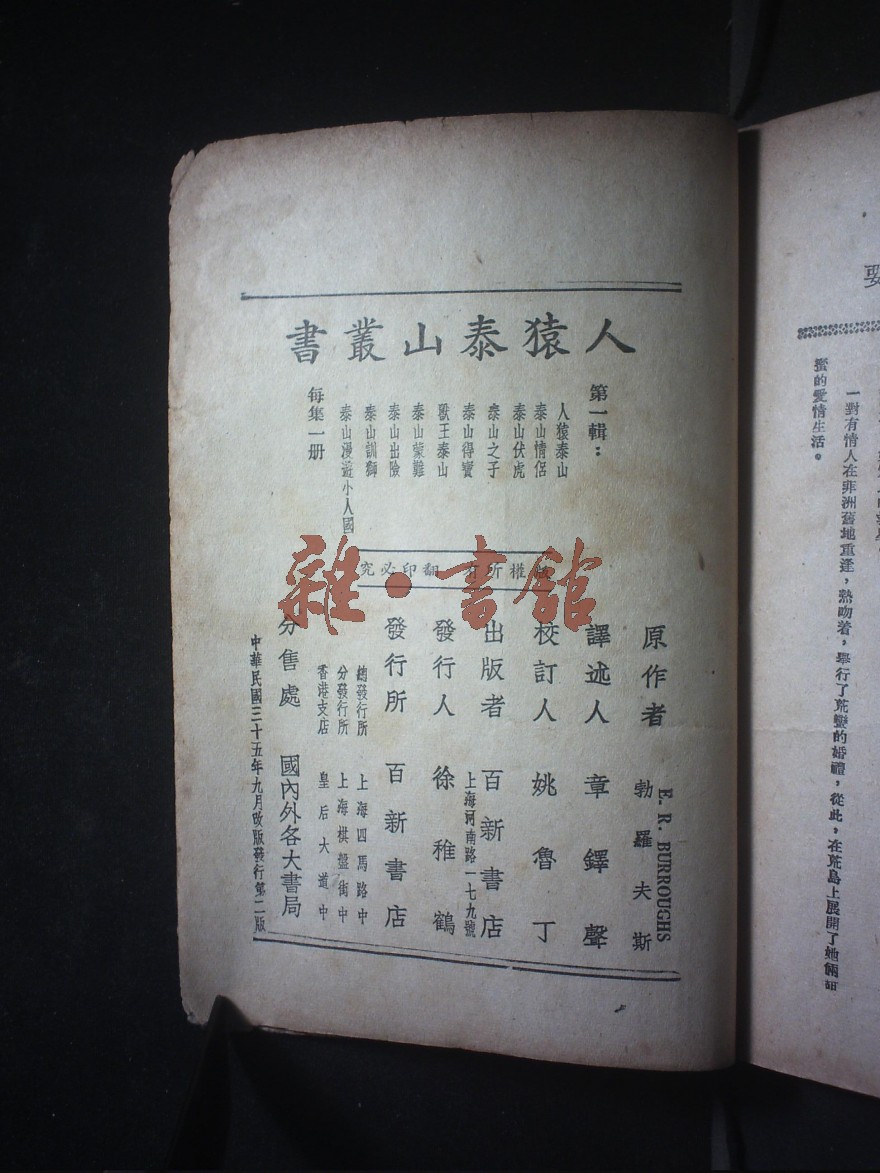 人猿泰山叢書
第一輯：
人猿泰山
泰山情侶
泰山伏虎
泰山之子
泰山得寶
獸王泰山
泰山蒙難
泰山出險
泰山訓獅
泰山漫遊小人國
每集一册
版權所有 翻印必究
原作者 E. R. BURROUGHS 勃羅夫斯
譯述人 章鐸聲
校訂人 姚魯丁
出版者 百新書店
上海河南路一七九號
發行人 徐稚鶴
發行所 百新書店
總發行所 上海四馬路中
分發行所 上海棋盤街中
香港支店 皇后大道中
分售處 國內外各大書局
中華民國三十五年九月改版發行第二版
雜·書館
要
一對有情人在非洲舊地重逢，熱吻着，舉行了荒蠻的婚禮，從此，在荒島上展開了她倆甜
蜜的愛情生活。